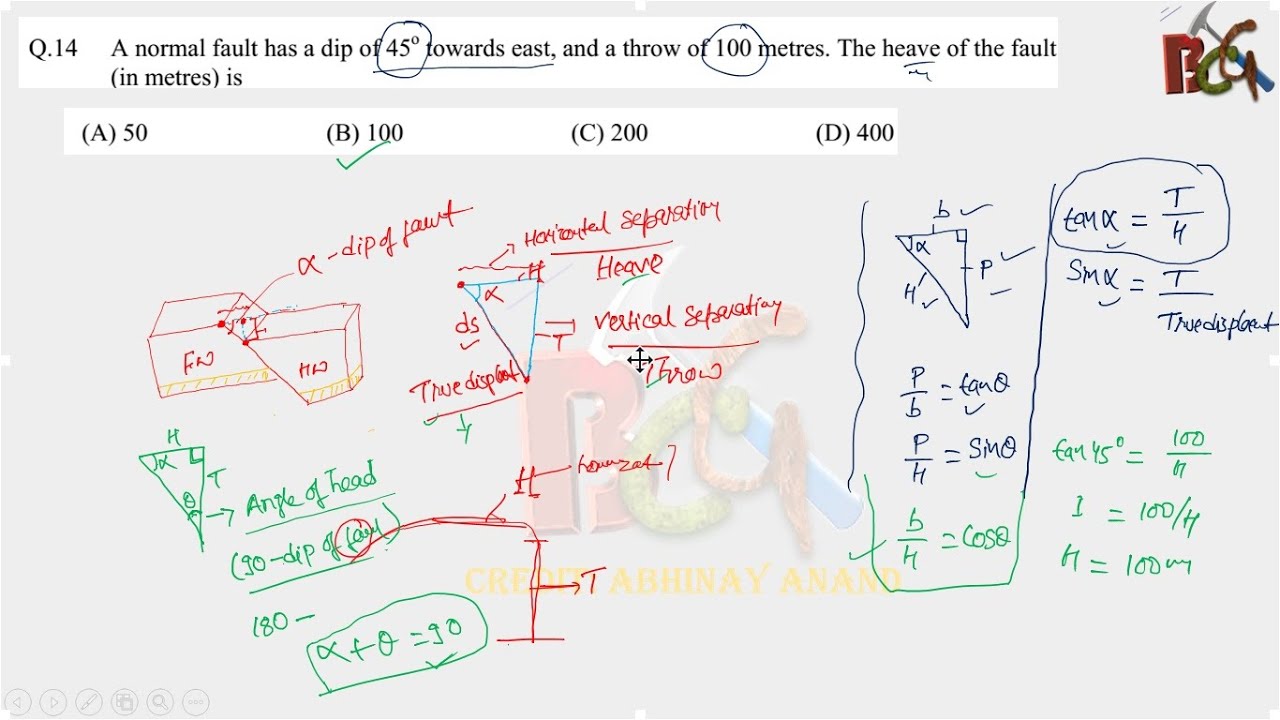 Q.14 A normal fault has a dip of 45° towards east, and a throw of 100 metres. The heave of the fault
(in metres) is
(A) 50 (B) 100 (C) 200 (D) 400
BCG
α - dip of fault
FW
HW
Horizontal separation
H
Heave
α
ds
T
Vertical separation
Throw
True displent
H
α
T
θ
Angle of head
(90-dip of fault)
180 -
α + θ = 90
H
T
b
α
P
H
P/b = tanθ
P/H = Sinθ
b/H = Cosθ
tanα = T/H
Sinα = T/True displacent
tan45° = 100/H
1 = 100/H
H = 100m
CREDIT ABHINAY ANAND